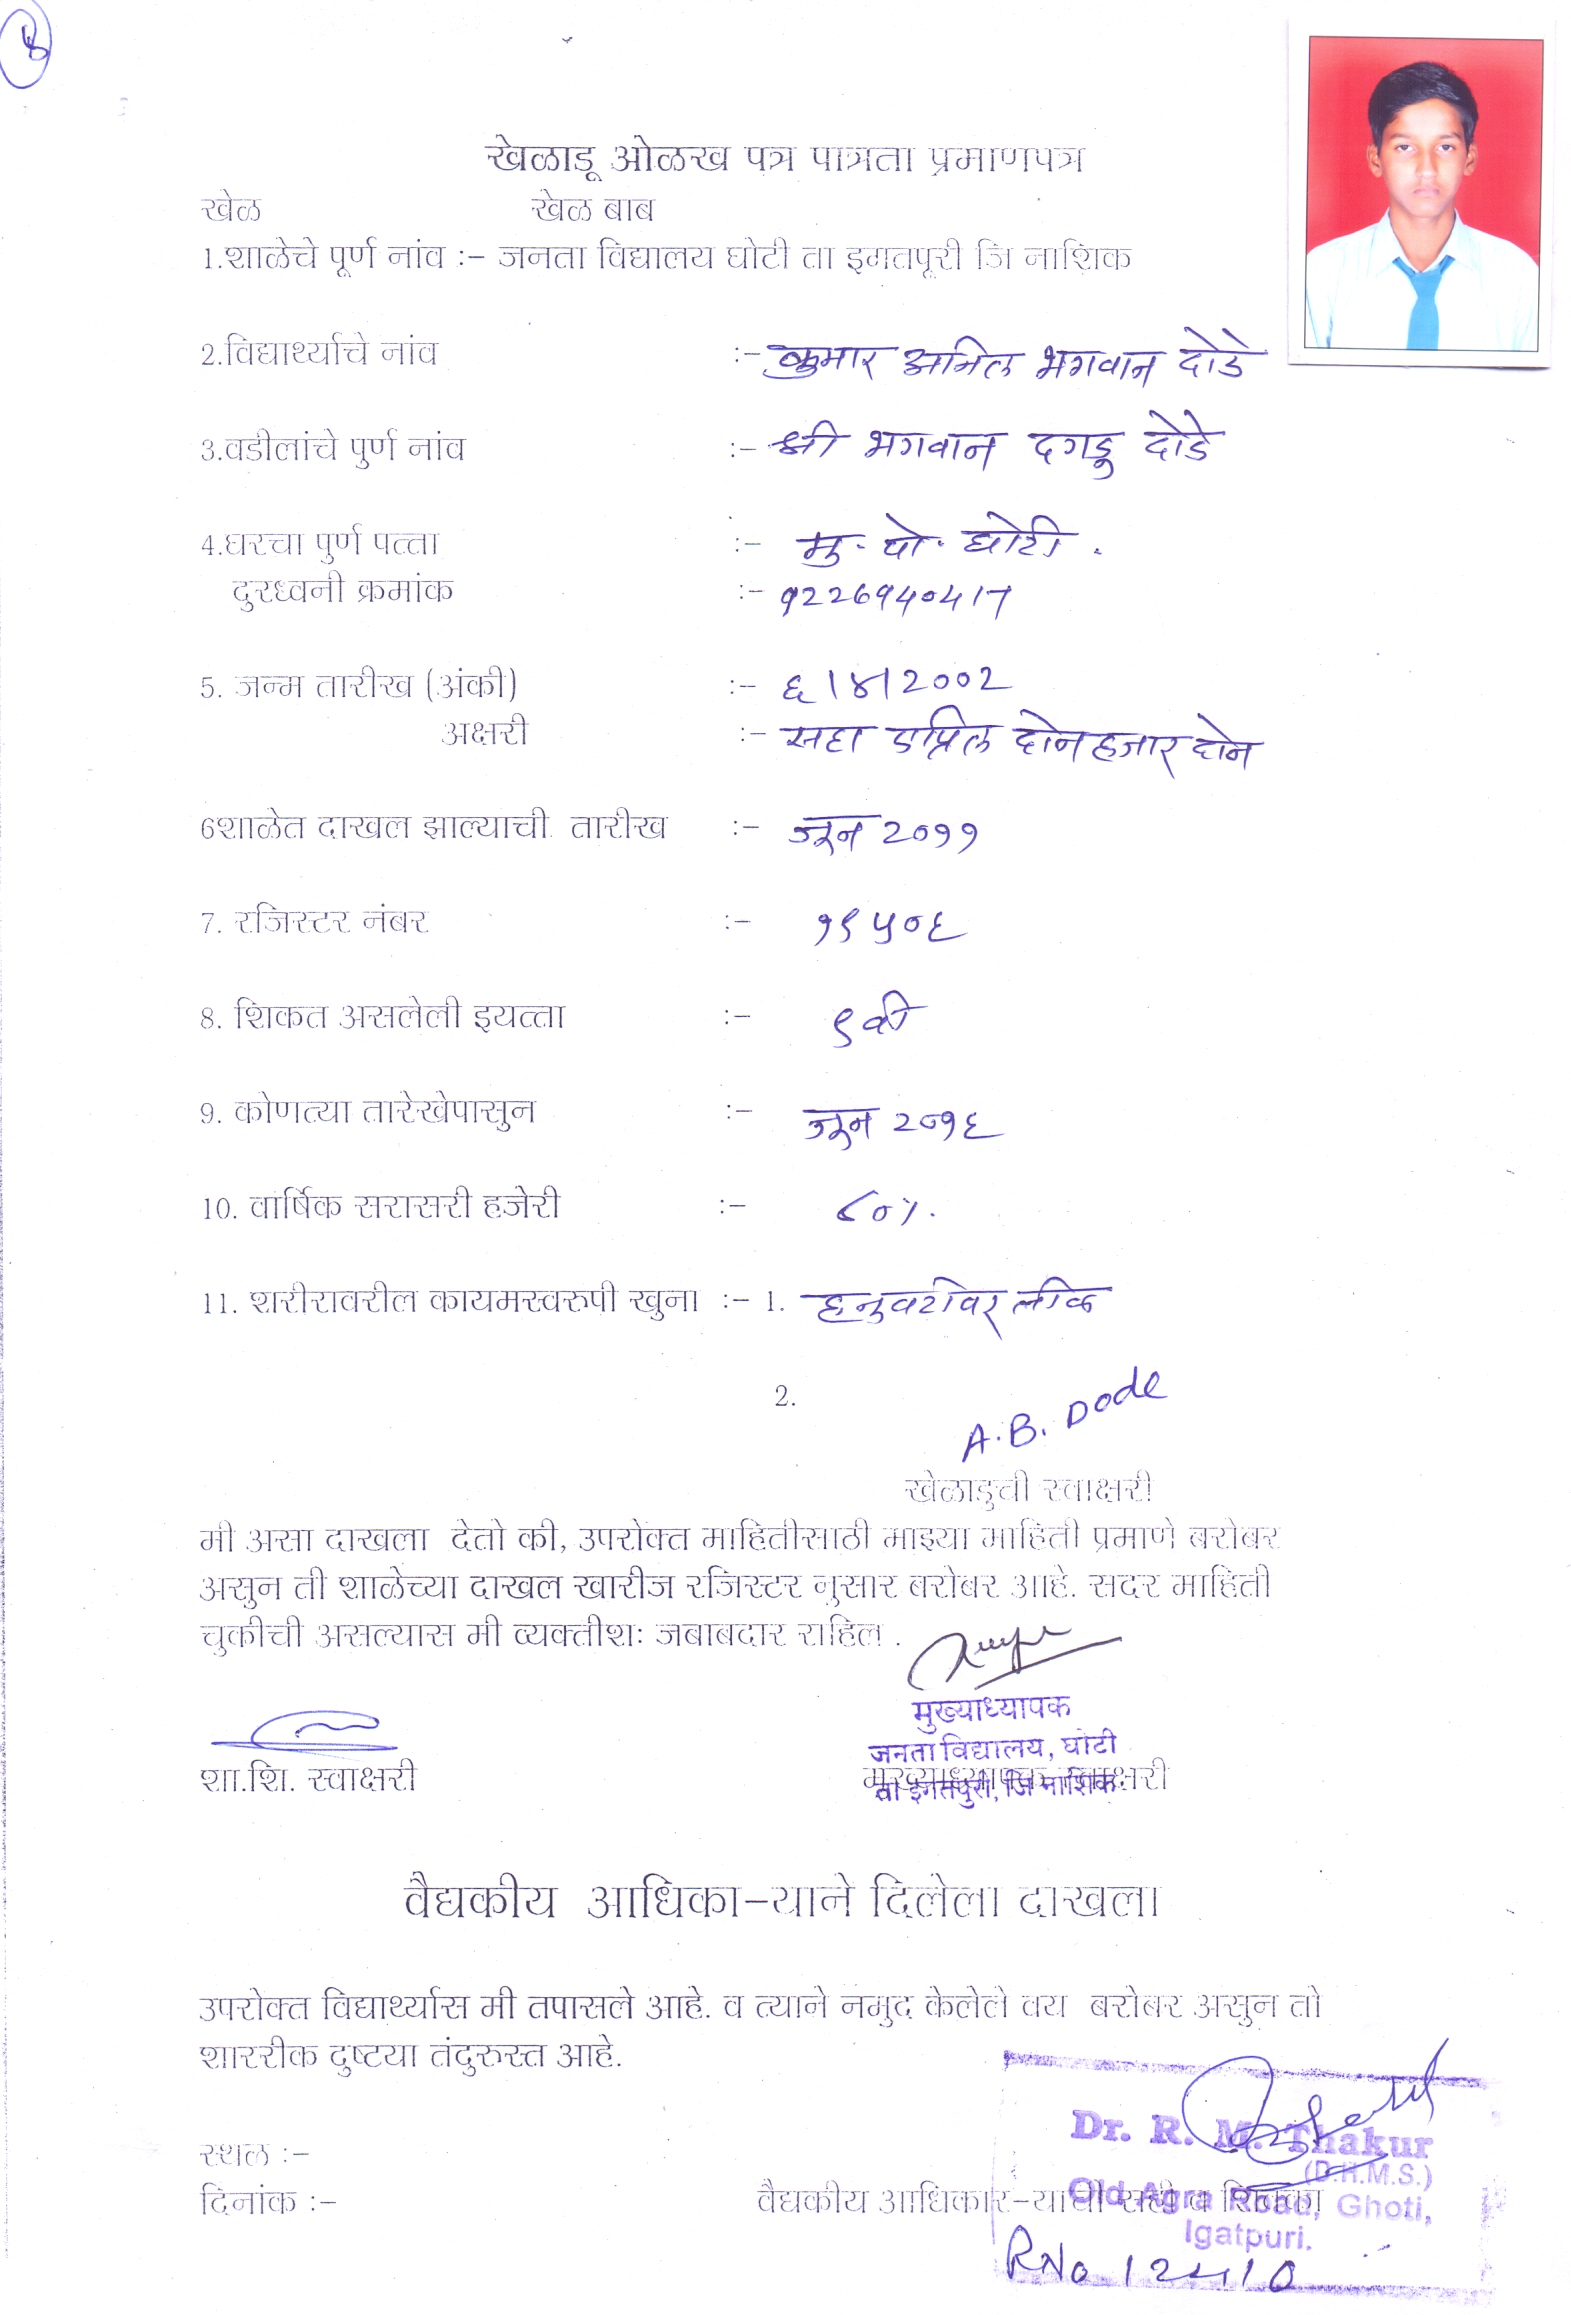 ४
खेळाडू ओळख पत्र पात्रता प्रमाणपत्र
खेळ खेळ बाब
1.शाळेचे पूर्ण नांव :- जनता विद्यालय घोटी ता इगतपूरी जि नाशिक
2.विद्यार्थ्याचे नांव :- कुमार अनिल भगवान दोडे
3.वडीलांचे पुर्ण नांव :- श्री भगवान दगडू दोडे
4.घरचा पुर्ण पत्ता :- मु. पो. घोटी .
दुरध्वनी क्रमांक :- ९226९40417
5. जन्म तारीख (अंकी) :- ६/४/2002
अक्षरी :- सहा एप्रिल दोन हजार दोन
6शाळेत दाखल झाल्याची तारीख :- जून 2०११
7. रजिस्टर नंबर :- १९५०६
8. शिकत असलेली इयत्ता :- ९वी
9. कोणत्या तारेखेपासुन :- जून २०१६
10. वार्षिक सरासरी हजेरी :- ८०%.
11. शरीरावरील कायमस्वरुपी खुना :- 1. हनुवटीवर
2.
A.B. Dode
खेळाडुची स्वाक्षरी
मी असा दाखला देतो की, उपरोक्त माहितीसाठी माझ्या माहिती प्रमाणे बरोबर
असुन ती शाळेच्या दाखल खारीज रजिस्टर नुसार बरोबर आहे. सदर माहिती
चुकीची असल्यास मी व्यक्तीशः जबाबदार राहिल .
मुख्याध्यापक
जनता विद्यालय, घोटी
शा.शि. स्वाक्षरी मुख्याध्यापक स्वाक्षरी
ता इगतपुरी, जि नाशिक.
वैद्यकीय आधिका-याने दिलेला दाखला
उपरोक्त विद्यार्थ्यास मी तपासले आहे. व त्याने नमुद केलेले वय बरोबर असुन तो
शाररीक दुष्टया तंदुरुस्त आहे.
Dr. R. M. Thakur
स्थळ :- (D.H.M.S.)
दिनांक :- वैद्यकीय आधिकार-याची सही व शिक्का
Old Agra Road, Ghoti,
Igatpuri.
RNo 12410